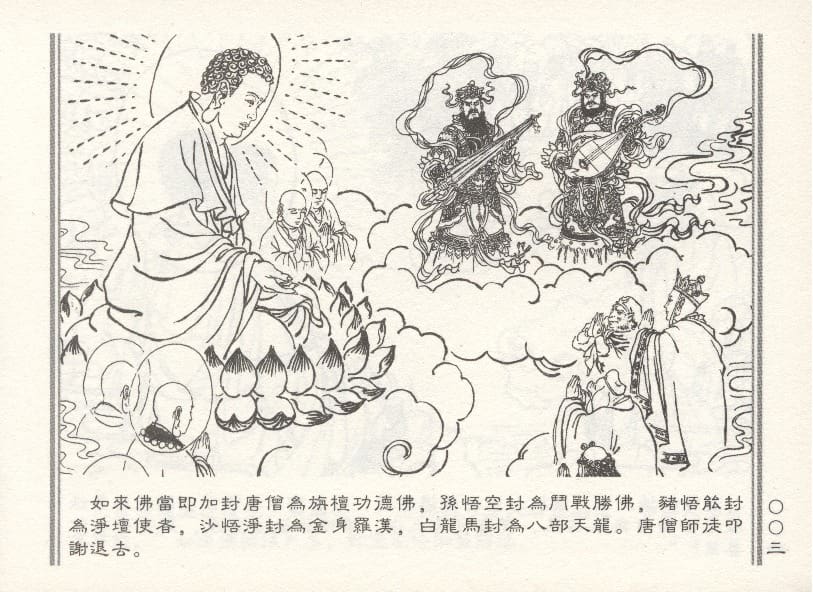 如來佛當即加封唐僧為旃檀功德佛，孫悟空封為鬥戰勝佛，豬悟能封
為淨壇使者，沙悟淨封為金身羅漢，白龍馬封為八部天龍。唐僧師徒叩
謝退去。
〇〇三